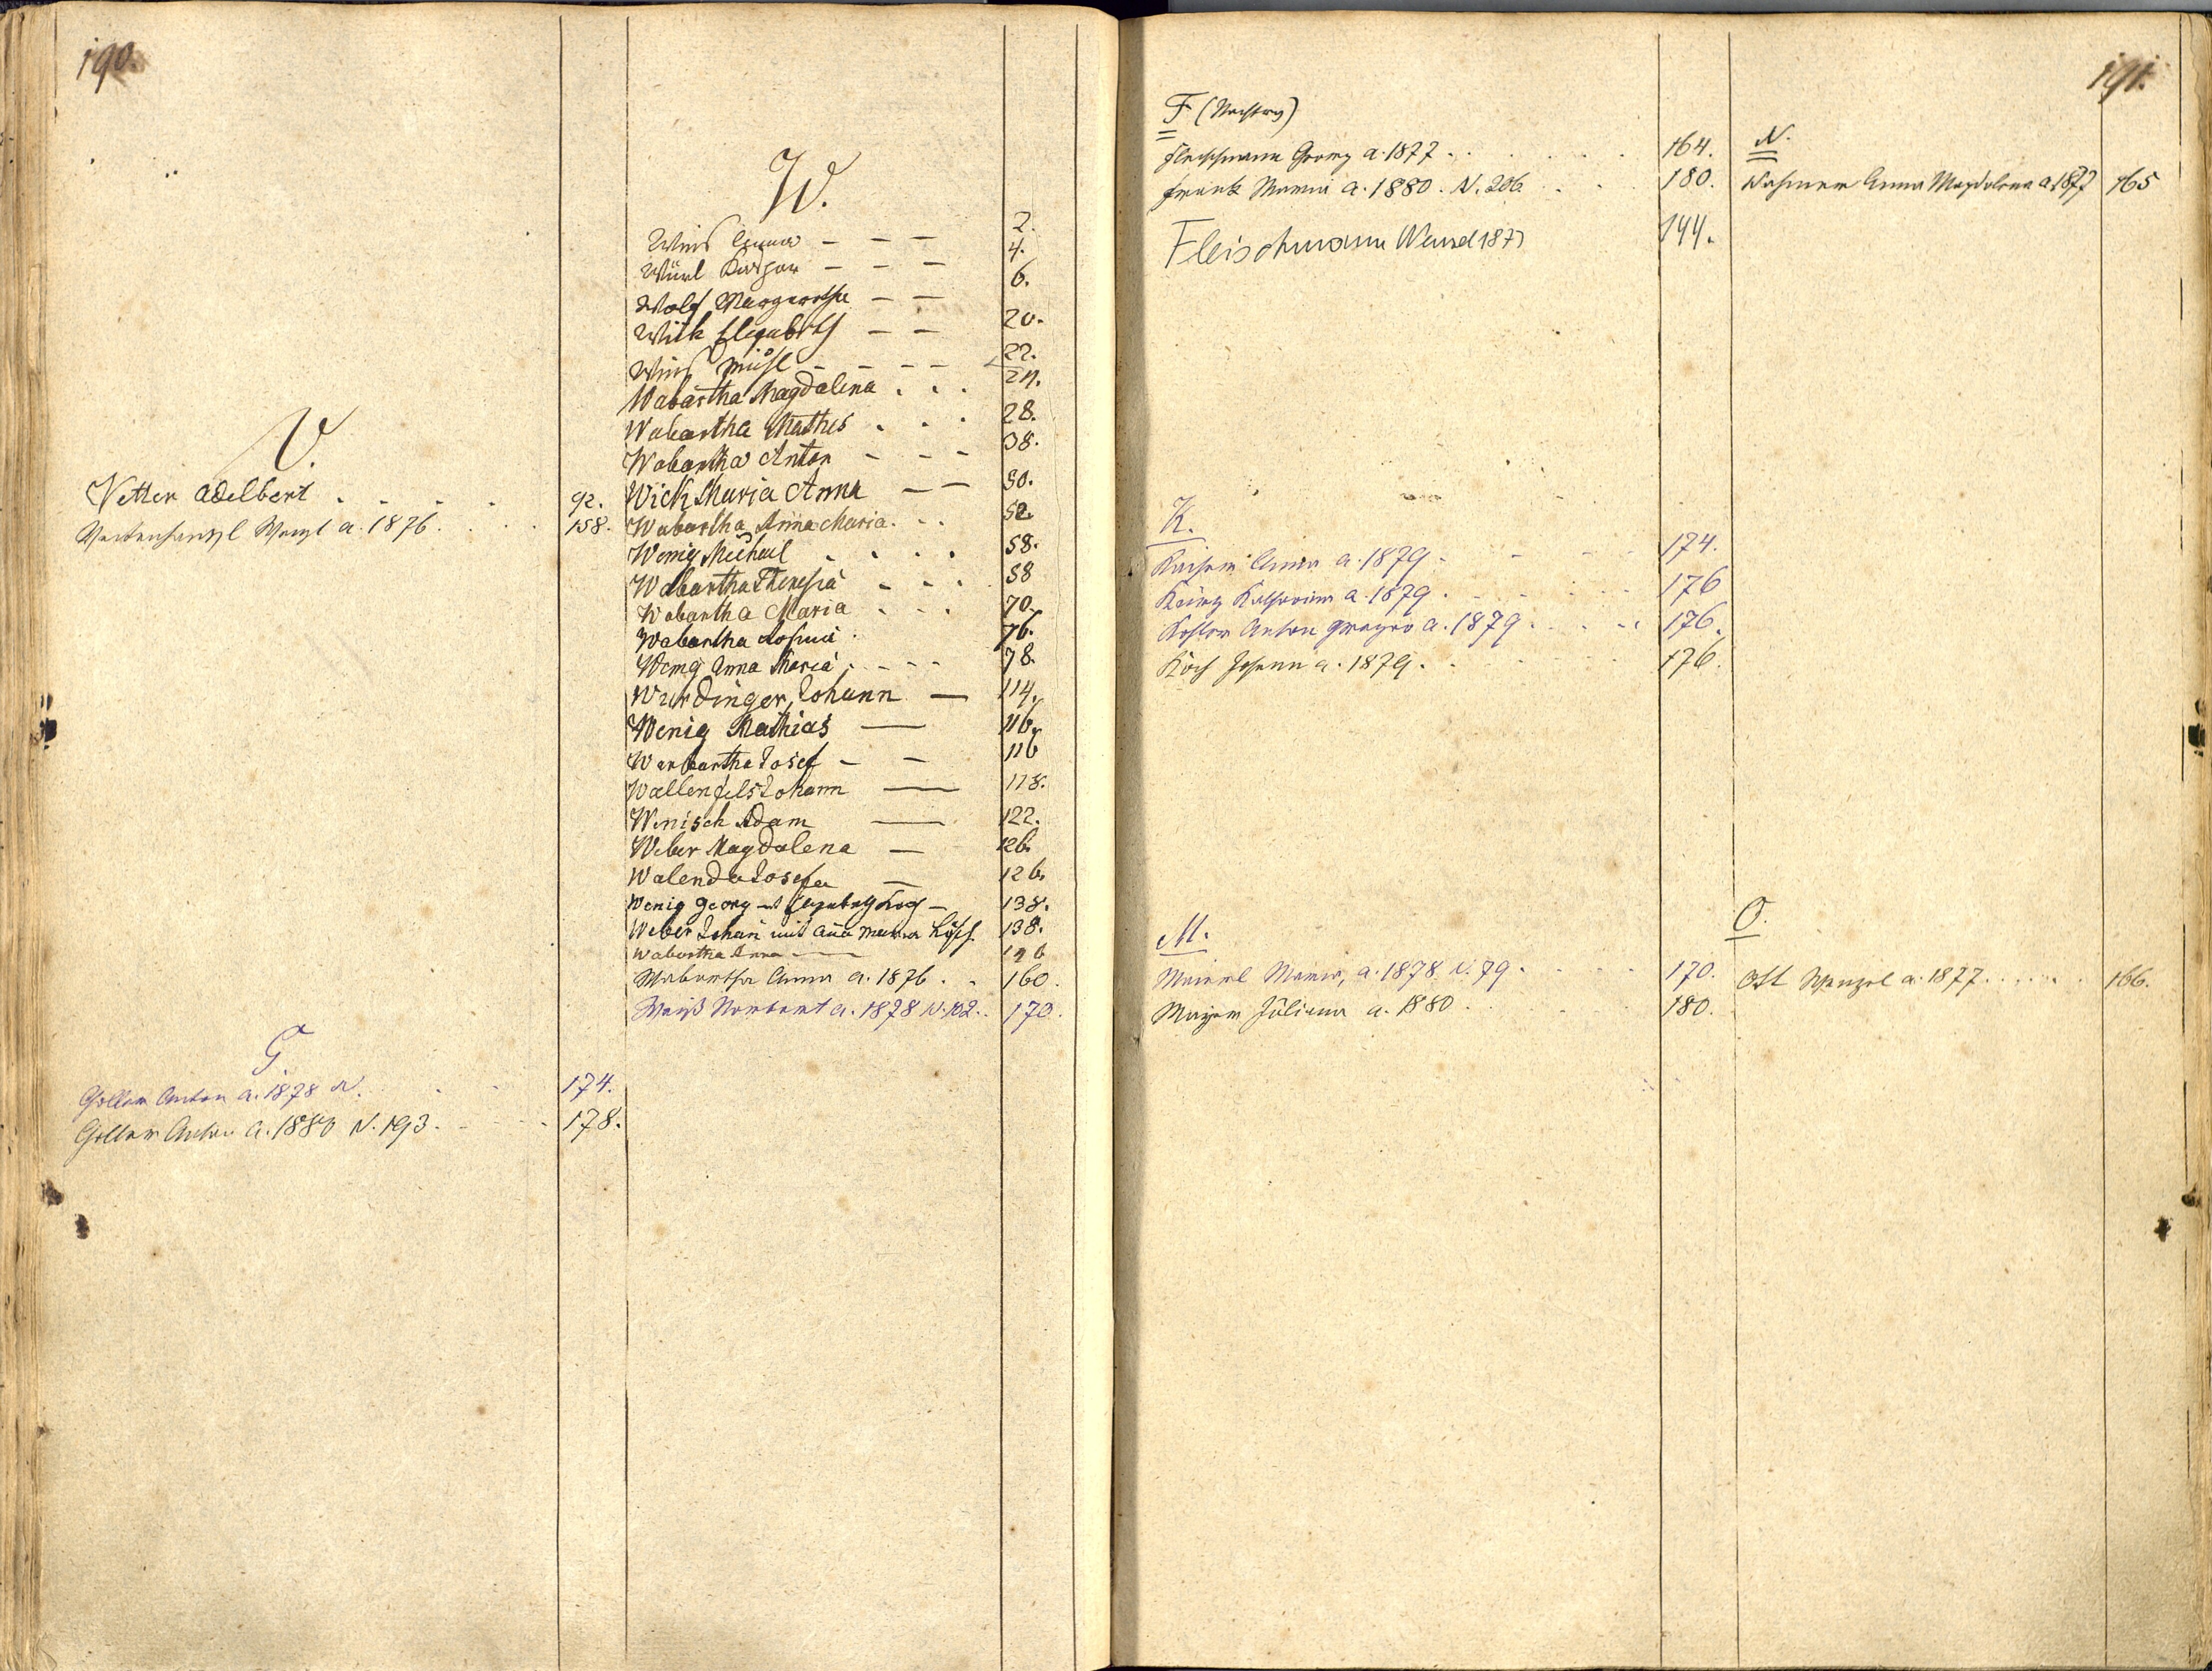 190.
V.
Vetter Adelbert . . . . 92.
a. 1876. . . . 158.
G.
Goller Anton a. 1878 N. . . 174.
Goller Anton a. 1880 N. 193. . . . 178.
W.
Anna — — — 2.
Würl — — — 4.
Wolf Margaretha — — 6.
Wilk Elisabeth — — 20.
— — — — 22.
Wabartha Magdalena . . . 24.
Wabartha Mathes . . . 28.
Wabartha Anton — — — 38.
Wick Maria Anna — — 50.
Wabartha Anna Maria. . . 52.
Wenig Michael . . . . 58.
Wabartha Theresia . . . 58
Wabartha Maria . . . 70.
Wabartha . 76.
Wenig Anna Maria . — — — 78.
Wurdinger, Johann — 114.
Wenig Mathias — 116.
Warbartha Josef — — 116
Wallenfels Johann — 118.
Wenisch Adam — 122.
Weber Magdalena — 126.
Walenda Josefa — 126.
Wenig Georg mit Elisabeth — 138.
Weber Johañ mit Aña Maria 138.
Wabartha Anna —
Wabartha Anna a. 1876 . . 160.
Weiß Norbert a. 1878 N. 102. . 172.
191.
F. (Nachtrag)
Fleischmann Georg a. 1877 . . . . . . 164.
Frank Maria a. 1880. N. 206 . . . 180.
Fleischmann Wenzel 1877 144.
K.
Kaiser Anna a. 1879 . - - 174.
König Katharina a. 1879 . - - - - - 176
Anton a. 1879 . . . . 176.
Koch Johann a. 1879. . - - - - - 176.
M.
Maierl Maria, a. 1878 N. 79. . . . . 170.
Mayer Juliana a. 1880 . . . . . 180.
N.
Anna Magdalena a. 1877 165
O.
Ott Wenzel a. 1877. . . . . . 166.